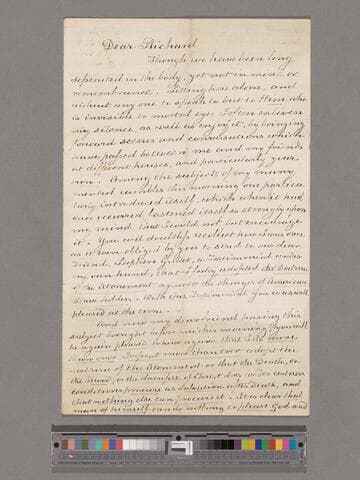 Dear Richard
Though we have been long
seperated in the body, yet not in mem. or
remembrance. Sitting here alone, and
without any one to speak to but to Him who
is invisible to mortal eyes I often enliven
my silence, as well as enjoy it, by bringing
forward scenes and conversations which
have passed between me and my friends
at different houses, and particularly your
own. Among the subjects of my many
mental rambles this morning one particu
larly introduced itself, which when it had
once occurred, fastened itself so strongly upon
my mind, that I could not but encourage
it. You will doubtless recollect how I was once
as were obliged by you to send to our dear
Friend Stephen Grellet, a Testimonial under
my own hand, that I fully adopted the Doctrine
of the Atonement against the charges of American
Slave holders. With this Testimonial you was well
pleased at the time.
And now my dear friend having this
subject brought before me this morning, you will
be again pleased when I again that I do more
than ever, I repeat more than ever adopt the
doctrine of the Atonement or that the Death, or
the Blood, or the Sacrifice of Christ, does under certain
conditions procure us Salvation after Death, and
that nothing else can procure it. It is clear that
man of himself can do nothing to please God and